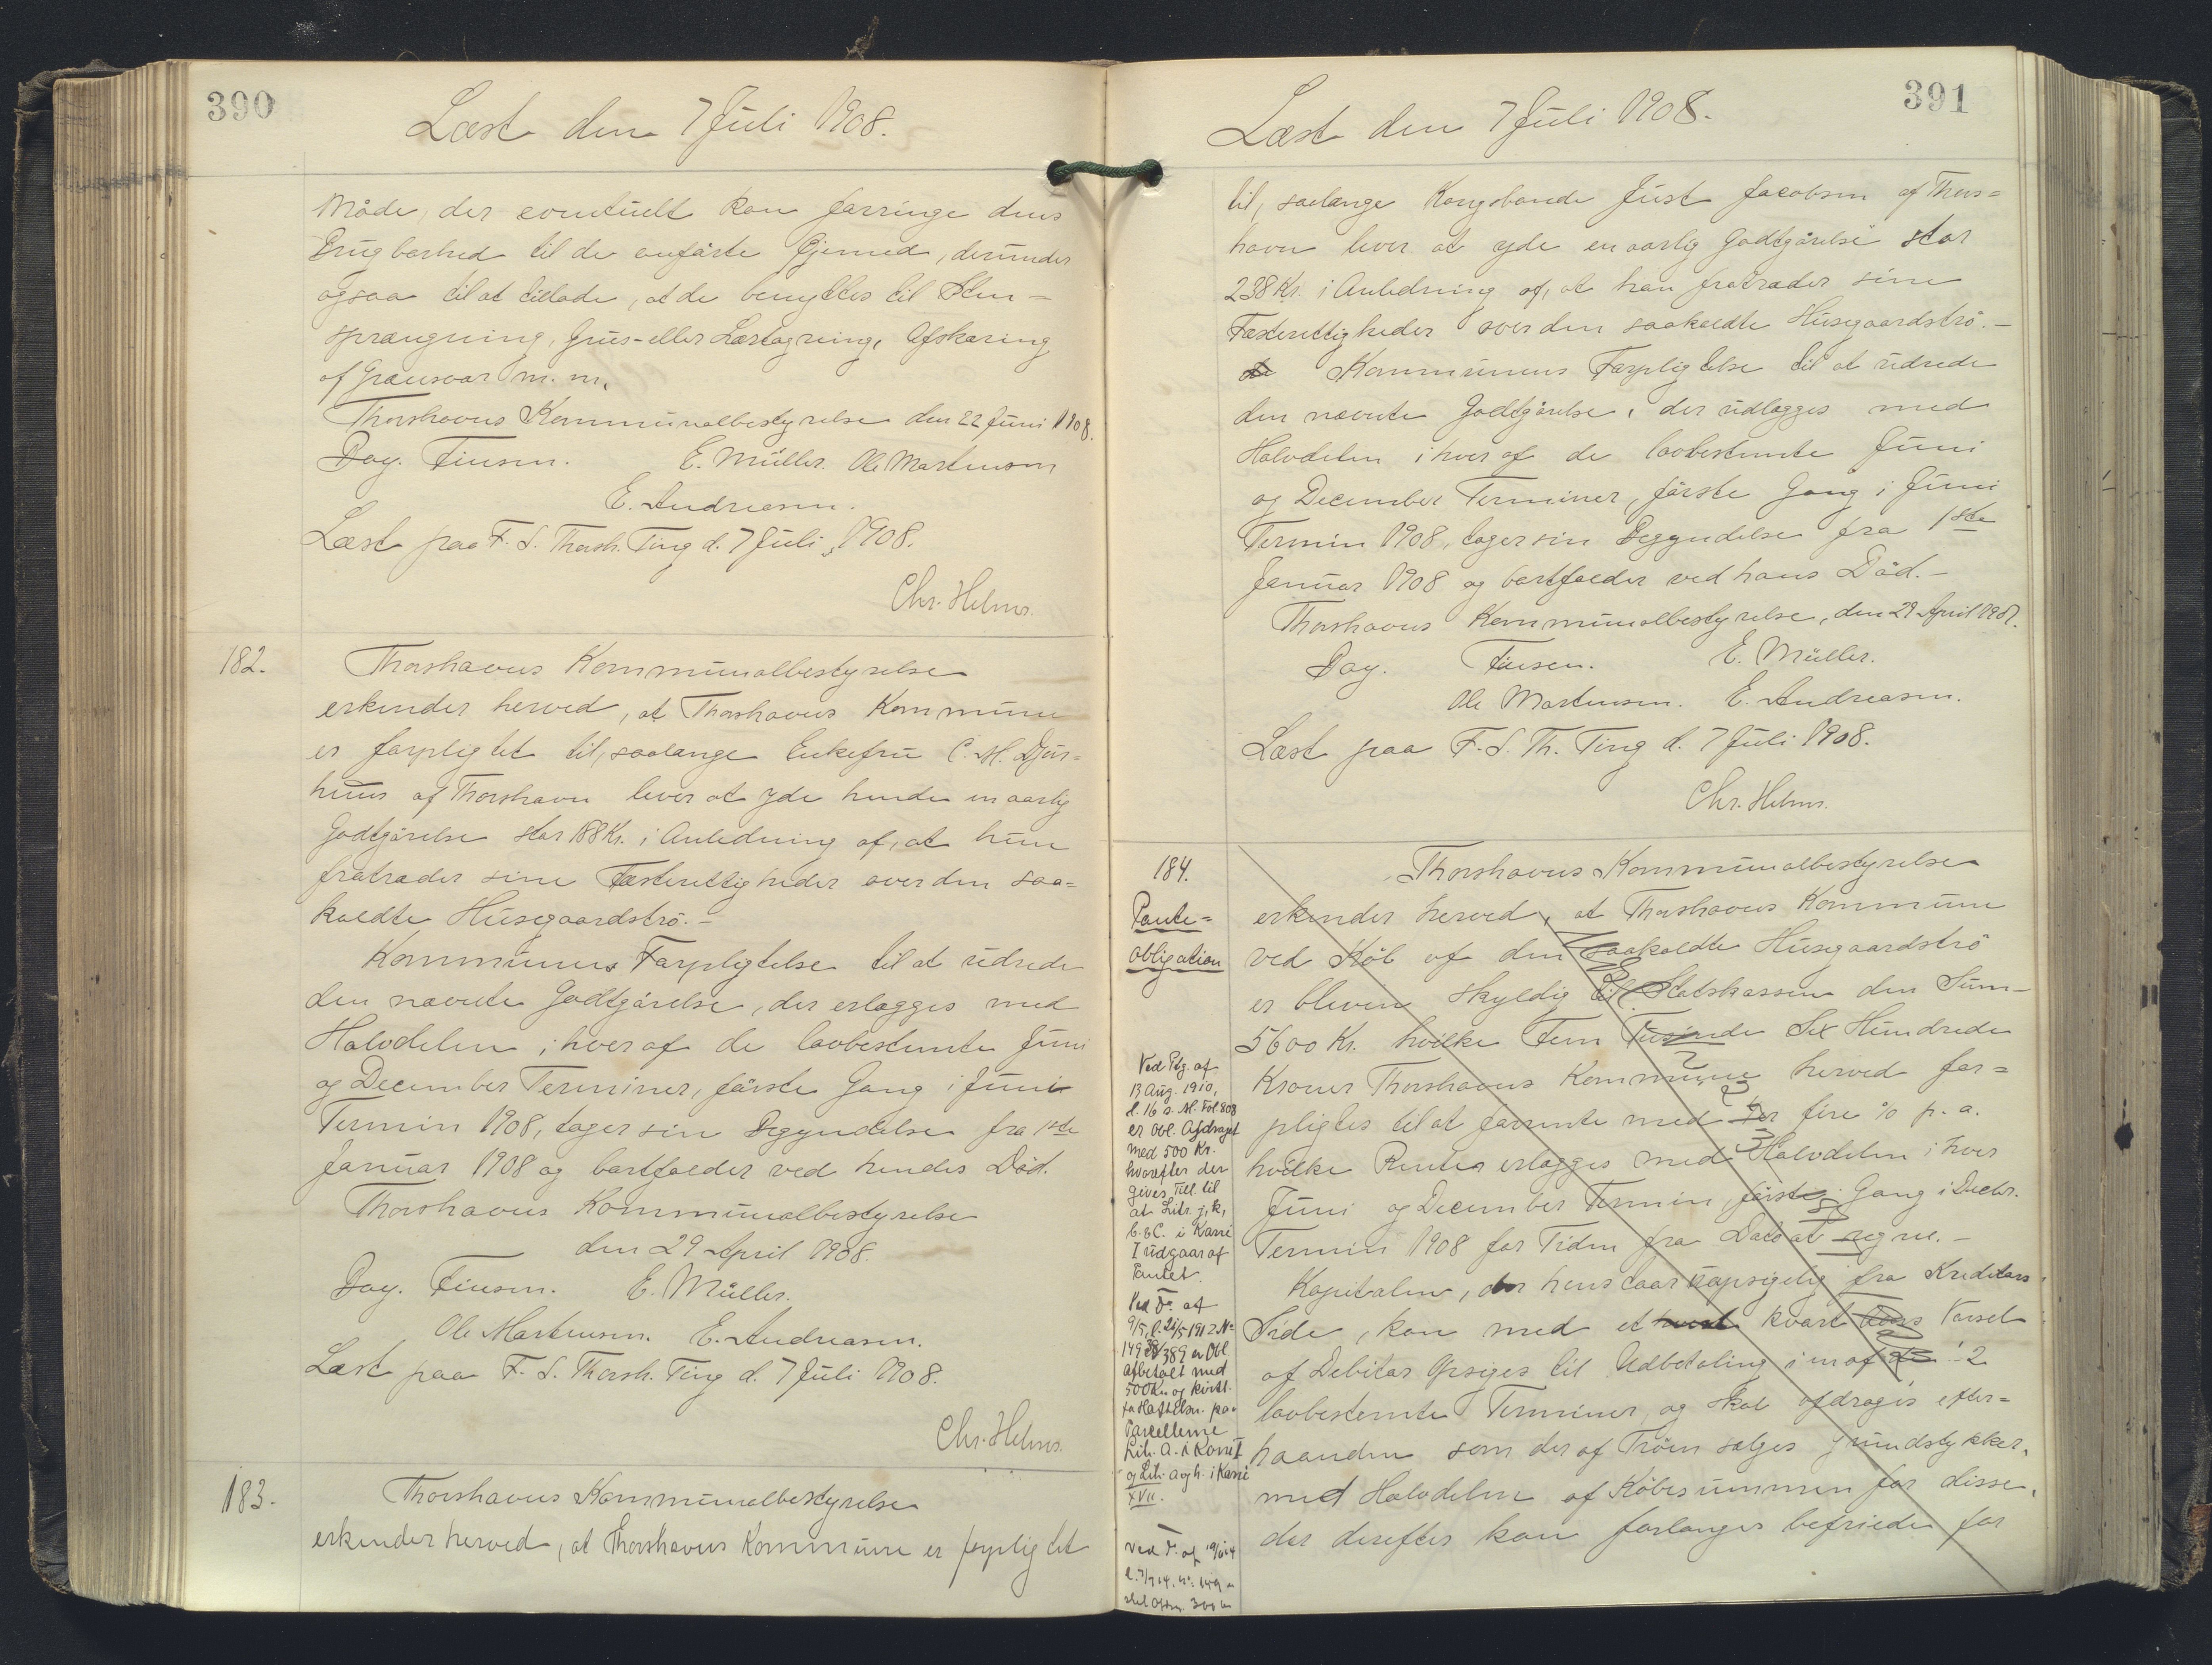 390
Læst den 7 Juli 1908.
Måde, der eventuelt kan forringe dens
Brugbarhed til de anførte Øjemed, derunder
ogsaa til at tillade, at de benyttes til Sten=
sprængning, Grus- eller Lertagning, Afskæring
af Grønsvær m. m.
Thorshavns Kommunalbestyrelse den 22 Juni 1908.
Dag. Finsen. E. Müller. Ole Mortensen
E. Andreasen.
Læst paa F. S. Thorsh. Ting d. 7 Juli 1908.
Chr. Helms.
182.
Thorshavns Kommunalbestyrelse
erkender herved, at Thorshavns Kommune
er forpligtet til, saalænge Enkefru C. M. Djur=
huus af Thorshavn lever at yde hende en aarlig
Godtgørelse stor 188 Kr. i Anledning af, at hun
fratræder sine Fæsterettigheder over den saa=
kaldte Husegaardstrø.-
Kommunens Forpligtelse til at udrede
den nævnte Godtgørelse, der erlægges med
Halvdelen i hver af de lovbestemte Juni
og December Terminer, første Gang i Juni
Termin 1908, tager sin Begyndelse fra 1ste
Januar 1908 og bortfalder ved hendes Død.
Thorshavns Kommunalbestyrelse
den 29 April 1908.
Dag. Finsen. E. Müller.
Ole Mortensen. E. Andreasen.
Læst paa F. S. Thorsh. Ting d. 7 Juli 1908.
Chr. Helms.
183.
Thorshavns Kommunalbestyrelse
erkender herved, at Thorshavns Kommune er forpligtet
391
Læst den 7 Juli 1908.
til, saalænge Kongsbonde Just Jacobsen af Thors=
havn lever at yde en aarlig Godtgørelse stor
238 Kr. i Anledning af, at han fratræder sine
Fæsterettigheder over den saakaldte Husegaardstrø.-
Kommunens Forpligtelse til at udrede
den nævnte Godtgørelse, der udlægges med
Halvdelen i hver af de lovbestemte Juni
og December Terminer, første Gang i Juni
Termin 1908, tager sin Begyndelse fra 1ste
Januar 1908 og bortfalder ved hans Død.-
Thorshavns Kommunalbestyrelse, den 29 April 1908.
Dag. Finsen. E. Müller.
Ole Mortensen. E. Andreasen.
Læst paa F. S. Th. Ting d. 7 Juli 1908.
Chr. Helms.
184.
Pante=
obligation
Thorshavns Kommunalbestyrelse
erkender herved, at Thorshavns Kommune
ved Køb af den saakaldte Husegaardstrø
er bleven skyldig til Statskassen den Sum
5600 Kr. hvilke Fem Tusinde Sex Hundrede
Kroner Thorshavns Kommune herved for=
pligtes til at forrente med fire % p. a.
hvilke Renter erlægges med Halvdelen i hver
Juni og December Termin, første Gang i Decbr.
Termin 1908 for Tiden fra Dato at regne.-
Kapitalen, der henstaar uopsigelig fra Kreditors
Side, kan med et kvart Aars Varsel
af Debitor opsiges til Udbetaling i en af de 2
lovbestemte Terminer, og skal afdrages efter=
haanden som der af Trøen sælges Grundstykker,
med Halvdelen af Købesummen for disse,
der derefter kan forlanges befriede for
Ved Ptg. af
13 Aug. 1910,
l. 16 s. M. Fol. 808
er Obl. Afdraget
med 500 Kr.
hvorefter der
gives Till. til
at Litr. j, k,
b. & C. i Karré
I udgaar af
Pantet.
Ved Do. af
9/5, l. 21/5 1912 No
149 389 er Obl.
afbetalt med
500 Kr. og kvitt.
for Hæftelsen paa
Parcellerne
Litr. A. i Karré I
og Litr. a og h. i Karré
XVII.
Ved Do. af